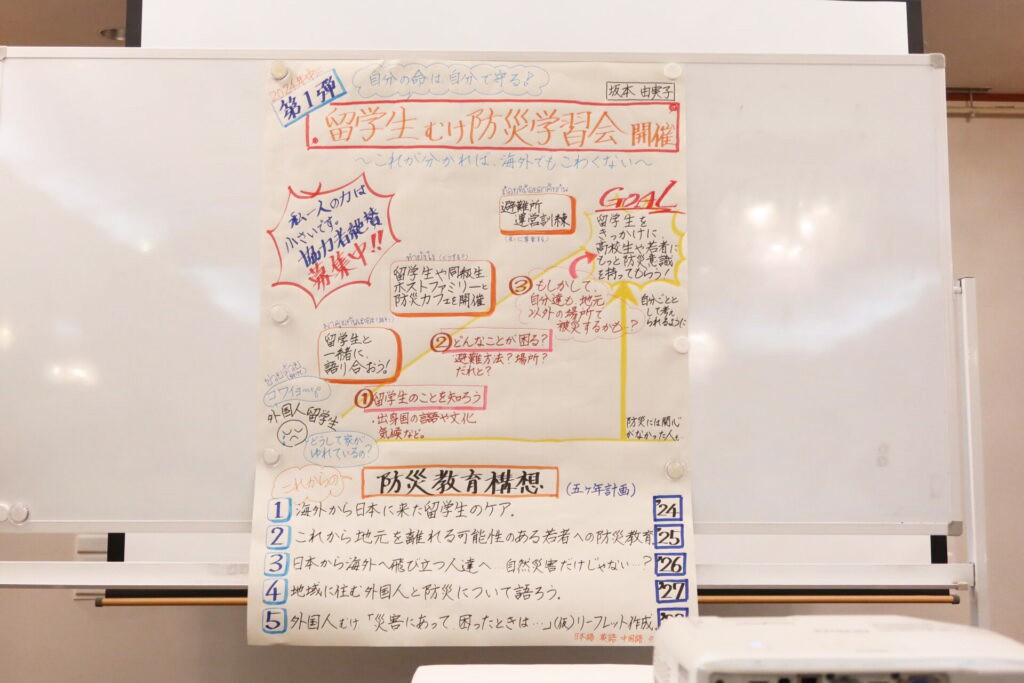 第1弾
自分の命は自分で守る?
坂本 由実子
留学生むけ防災学習会 開催
～これが分かれば、海外でもこわくない～
私一人の力は
小さいです。
協力者絶賛
募集中!!
避難所
運営訓練
GOAL
留学生を
きっかけに、
高校生や若者に
もっと防災意識
を持ってもらう!
留学生や同級生
ホストファミリーと
防災カフェを開催
③もしかして、
自分達も、地元
以外の場所で
被災するかも…?
自分ごと
として考え
られるように
留学生と
一緒に、
語り合おう!
②どんなことが困る?
避難方法?場所?
だれと?
コワイヨー
外国人留学生
①留学生のことを知ろう
・出身国の言語や文化
気候など。
どうして家が
ゆれているの?
防災には関心
がなかった人も
これからの
防災教育構想
(五ヶ年計画)
1 海外から日本に来た留学生のケア. '24
2 これから地元を離れる可能性のある若者への防災教育 '25
3 日本から海外へ飛び立つ人達へ…自然災害だけじゃない…? '26
4 地域に住む外国人と防災について語ろう. '27
5 外国人むけ「災害にあって困ったときは…」(仮)リーフレット作成.
日本語 英語 中国語